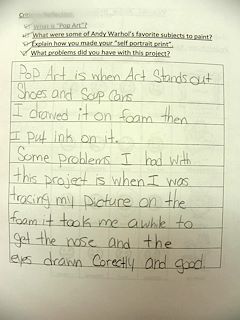 What is "Pop Art"?
What were some of Andy Warhol's favorite subjects to paint?
Explain how you made your "self portrait print".
What problems did you have with this project?
Pop Art is when Art Stands out
Shoes and Soup Cans
I drawed it on foam then
I put ink on it.
Some problems I had with
this project is when I was
tracing my picture on the
foam it took me awhile to
get the nose and the
eyes drawn Corectly and good.